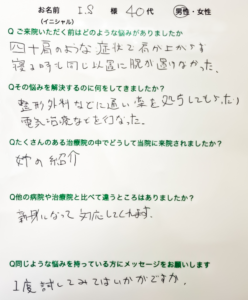 お名前 I.S 様 40代 男性・女性
(イニシャル)
Q ご来院いただく前はどのような悩みがありましたか
四十肩のような症状で肩が上がらず
寝る時も同じ以置に腕が戻りなかった。
Qその悩みを解決するのに何をしてきましたか?
整形外科などに通い薬を処方してもらったり
電気治療などを行なった。
Qたくさんある治療院の中でどうして当院に来院されましたか?
姉の紹介
Q他の病院や治療院と比べて違うところはありましたか?
親身になって対応してくれます。
Q同じような悩みを持っている方にメッセージをお願いします
1度試してみてはいかがですか。